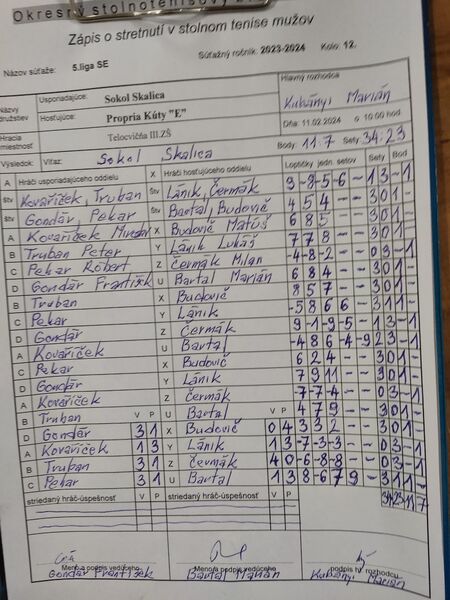 Okresný stolnotenisový
Zápis o stretnutí v stolnom tenise mužov
Názov súťaže: 5.liga SE Súťažný ročník: 2023-2024 Kolo: 12.
Názvy družstiev Usporiadajúce: Sokol Skalica Hlavný rozhodca
Hosťujúce: Propria Kúty "E" Kubányi Marián
Hracia miestnosť Telocvičňa III.ZŠ Dňa: 11.02.2024 o 10:00 hod
Výsledok: Víťaz: Sokol Skalica Body: 11:7 Sety: 34:23
A Hráči usporiadajúceho oddielu X Hráči hosťujúceho oddielu Loptičky jedn. setov Sety Bod
Štv Kovaříček, Truban Štv Lánik, Čermák
Štv Gondár, Pekar Štv Bartal, Budovič 4 5 4 - - 3 0 1 -
A Kovaříček X Budovič Matúš 6 8 5 - - 3 0 1 -
B Truban Peter Y Lánik Lukáš 7 7 8 - - 3 0 1 -
C Pekar Róbert Z Čermák Milan -4 -8 -2 - - 0 3 - 1
D Gondár František U Bartal Marián 6 8 4 - - 3 0 1 -
B Truban X Budovič 8 5 7 - - 3 0 1 -
C Pekar Y Lánik -5 8 6 6 - 3 1 1 -
D Gondár Z Čermák 9 -1 -9 -5 - 1 3 - 1
A Kovaříček U Bartal
C Pekar X Budovič 6 2 4 - - 3 0 1 -
D Gondár Y Lánik 7 9 11 - - 3 0 1 -
A Kovaříček Z Čermák -7 -7 -4 - - 0 3 - 1
B Truban V P U Bartal V P 4 7 9 - - 3 0 1 -
D Gondár 3 1 X Budovič 0 4 3 3 2 - - 3 0 1 -
A Kovaříček 1 3 Y Lánik 1 3 -7 -3 -3 - - 0 3 - 1
B Truban 3 1 Z Čermák 4 0 -6 -8 -8 - - 0 3 - 1
C Pekar 3 1 U Bartal 1 3 8 -6 7 9 - 3 1 1 -
striedaný hráč-úspešnosť V P striedaný hráč-úspešnosť V P 34 23 11 7
Meno a podpis vedúceho Meno a podpis vedúceho podpis hl. rozhodcu
Gondár František Bartal Marián Kubányi Marián